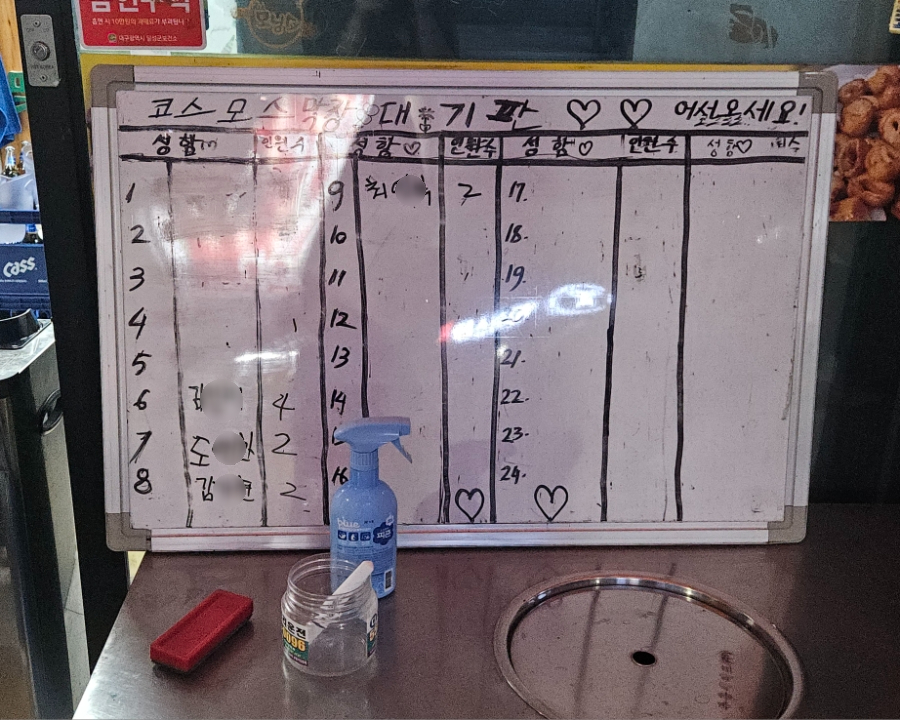 흡연 시 10만원의 과태료가 부과됩니다
대구광역시 달성군보건소
코스모스 막창 대기판 ♡ ♡ 어서올세요!
성함 인원수 성함♡ 인원수 성함♡ 인원수 성함♡
1 9 2 17.
2 10 18.
3 11 19.
4 12
5 13 21.
6 4 14 22.
7 도 2 23.
8 2 16 24.
♡ ♡
Cass
blue
피죤